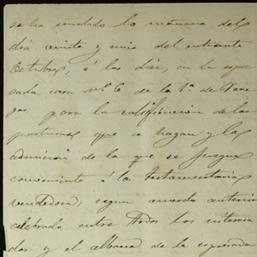 se ha señalado la mañana del
dia veinte y uno del entrante
Octubre, á las diez, en la
sada, casa nº 6 de la Cª de
para la calificacion de las
posturas que se hagan y la
admision de la que se juzgue
conveniente á la testamentaria
vendedora, segun acuerdo anterior
celebrado entre todos los interesa
dos y el albacea de la espresada